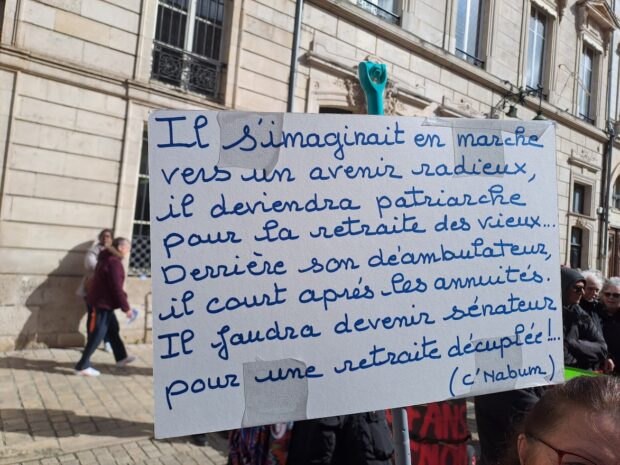 Il s'imaginait en marche
vers un avenir radieux,
il deviendra patriarche
pour la retraite des vieux...
Derrière son déambulateur,
il court aprés les annuités.
Il faudra devenir sénateur
pour une retraite décuplée!...
(C'Nabum)